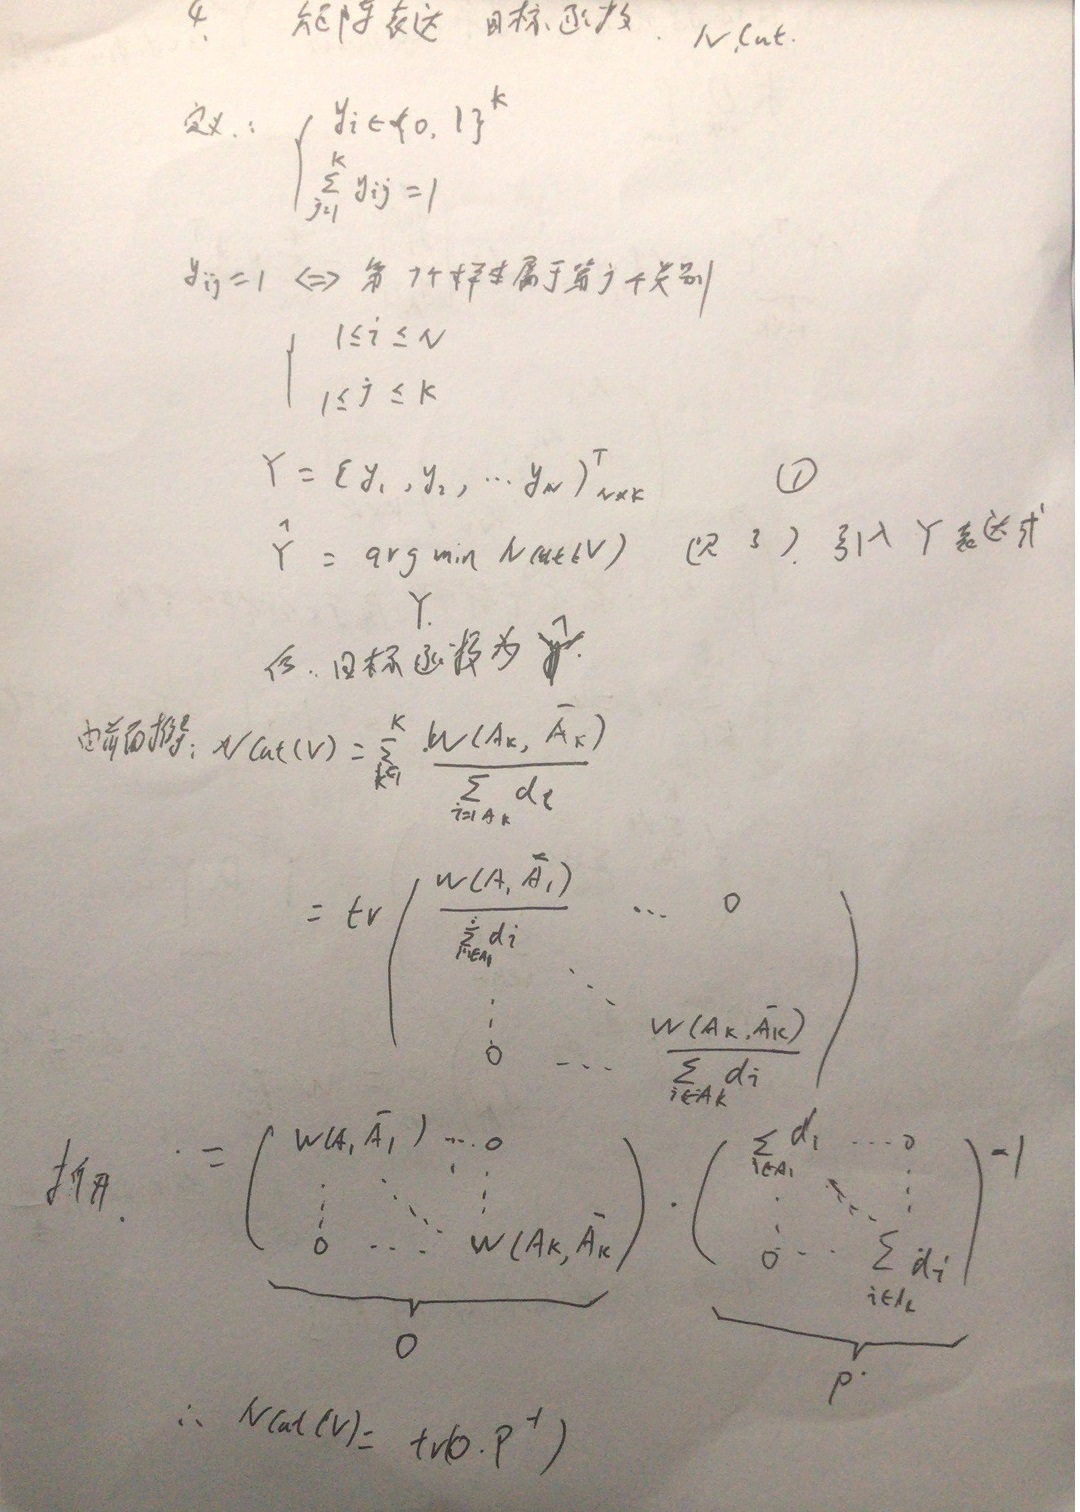 4. 矩阵表达 目标函数. NCut.
定义: { y_i ∈ {0, 1}^K
∑_{j=1}^{K} y_ij = 1
y_ij = 1 <=> 第 i 个样本属于第 j 个类别
{ 1 ≤ i ≤ N
1 ≤ j ≤ K
Y = (y_1, y_2, ... y_N)^T_{N×K} ①
Ŷ = arg min_Y NCut(V) (见 3). 引入 Y 表达式
目标函数为 Ŷ.
由前面推导: NCut(V) = ∑_{k=1}^{K} W(A_k, Ā_k) / ∑_{i=1 A_k} d_i
= tr ( W(A_1 Ā_1) / ∑_{i∈A_1} d_i ... 0
⋮ ⋱
0 ... W(A_K, Ā_K) / ∑_{i∈A_K} d_i )
拆开. = ( W(A_1 Ā_1) ... 0 ⋮ ⋱ ⋮ 0 ... W(A_K, Ā_K) ) · ( ∑_{i∈A_1} d_i ... 0 ⋮ ⋱ ⋮ 0 ... ∑_{i∈A_k} d_i )^{-1}
O P
∴ NCut(V) = tr(O·P^{-1})